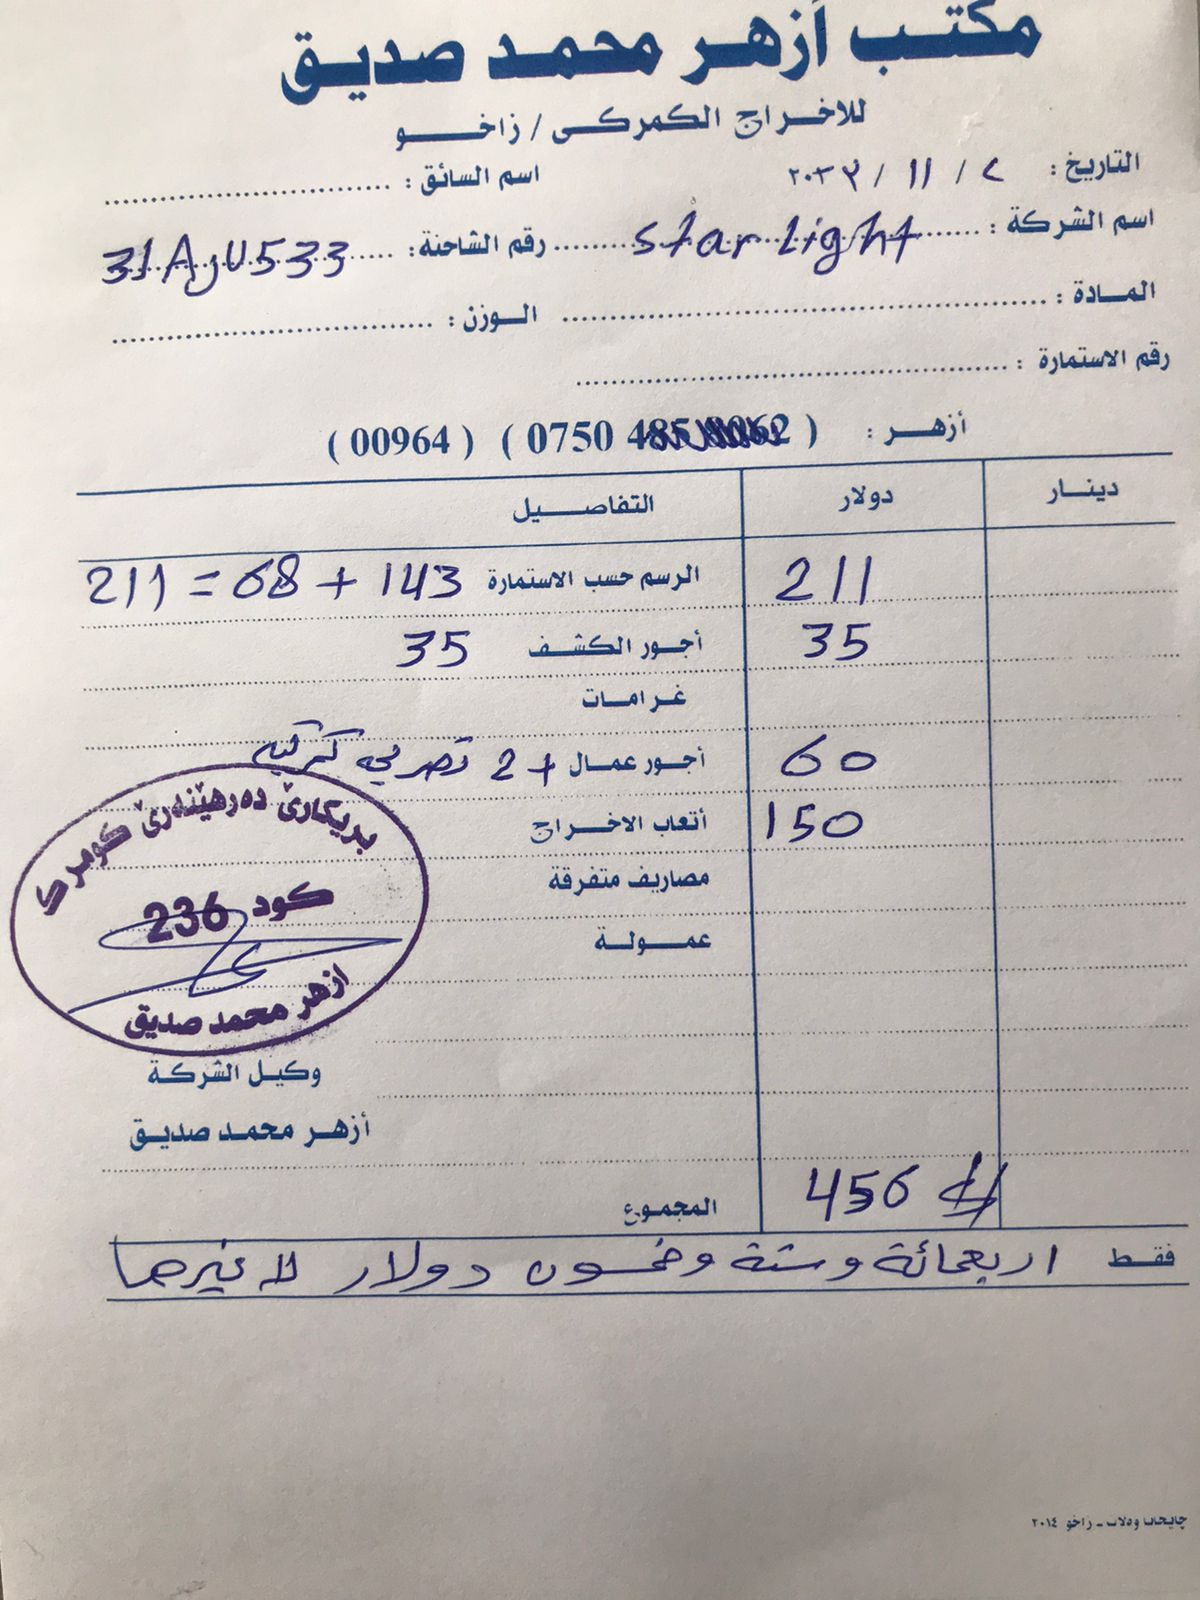 مكتب أزهر محمد صديق
للاخراج الكمركي / زاخو
التاريخ : ٢ / ١١ / ٢٠٢٢ اسم السائق :
اسم الشركة : star Light رقم الشاحنة : 31 AJU 533
المادة : الوزن :
رقم الاستمارة :
أزهر : ( 0750 ) ( 00964 )
دينار دولار التفاصيل
211 الرسم حسب الاستمارة 143 + 68 = 211
35 أجور الكشف 35
غرامات
60 أجور عمال + 2
150 أتعاب الاخراج
مصاريف متفرقة
عمولة
بریکارێ دەرهێنەرێ کومرک
كود 236
ازهر محمد صديق
وكيل الشركة
أزهر محمد صديق
المجموع 456 $
فقط اربعمائة وستة وخمسون دولار لا غيرها
زاخو ٢٠١٤